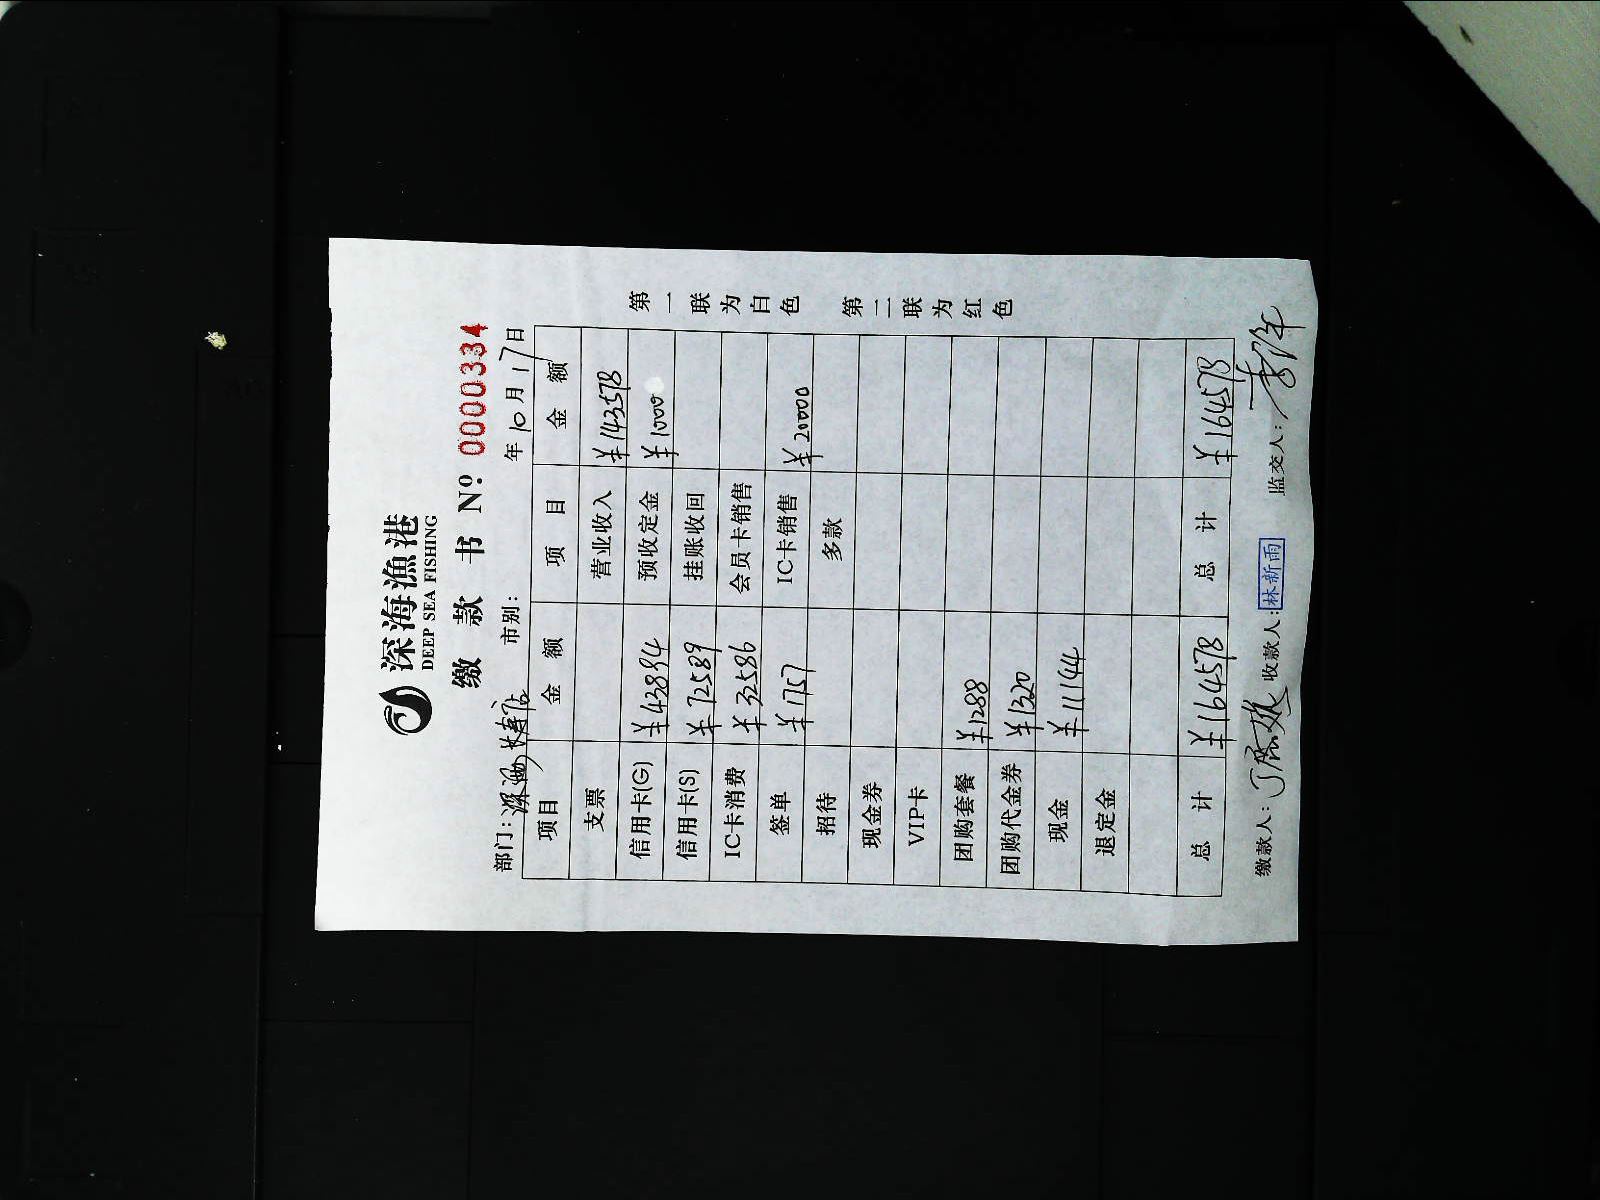 深海漁港
DEEP SEA FISHING
缴款书 Nº 0000334
部门: 市别: 年 10 月 17 日
项目 金额 项目 金额
支票 营业收入 ¥143578
信用卡(G) ¥43894 预收定金 ¥1000
信用卡(S) ¥72589 挂账收回
IC卡消费 ¥32586 会员卡销售
签单 ¥1757 IC卡销售 ¥20000
招待 多款
现金券
VIP卡
团购套餐 ¥1288
团购代金券 ¥1320
现金 ¥11144
退定金
总计 ¥164578 总计 ¥164578
缴款人: 收款人: 林新雨 监交人:
第一联为白色 第二联为红色